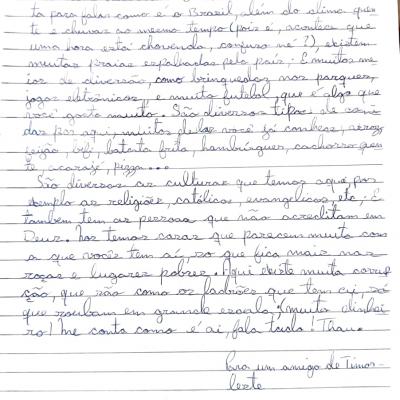 ta para falar como é o Brasil, além do clima quen
te e chuvas ao mesmo tempo (pois é, acontece que
uma hora está chovendo, confuso né?), existem
muitas praias espalhadas pelo país. E muitos me
ios de diversão, como brinquedos nos parques,
jogos eletrônicos, e muito futebol, que é algo que
você gosta muito. São diversos tipos de comi
das por aqui, muitos delas você já conhece, arroz,
feijão, bife, batata frita, hambúrguer, cachorro quen
te, acarajé, pizza...
São diversas as culturas que temos aqui, por
exemplo as religiões, católicos, evangélicos, etc. E
também tem as pessoas que não acreditam em
Deus. Nos temos casas que parecem muito com
a que vocês tem aí, so que fica mais nas
roças e lugares pobres. Aqui existe muita corrup
ção, que são como os ladrões que tem aí, só
que roubam em grande escala, (muito dinhei
ro)! Me conta como é ai, fala tudo! Thau.
Para um amigo de Timor-
leste